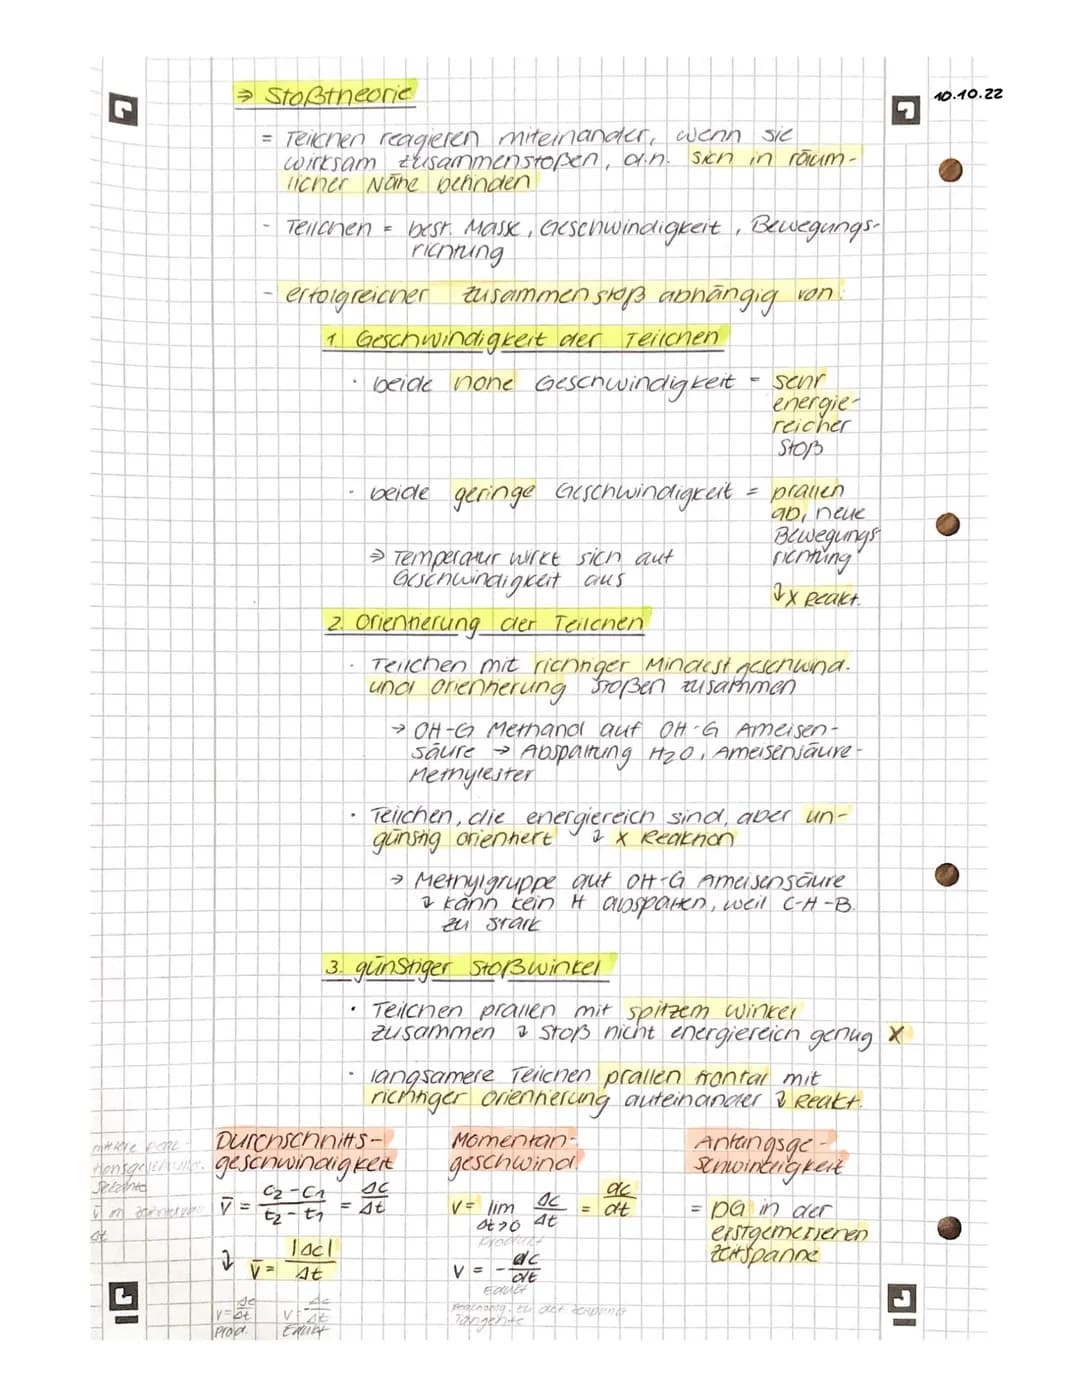 10.10.22
⇒ Stoßtheorie
= Teilchen reagieren miteinander, wenn sie
wirksam zusammenstoßen, d.h. sich in räum-
licher Nähe befinden
- Teilchen = best. Masse, Geschwindigkeit, Bewegungs-
richtung
- erfolgreicher Zusammenstoß abhängig von:
1. Geschwindigkeit der Teilchen
· beide hohe Geschwindigkeit = sehr
energie-
reicher
Stoß
· beide geringe Geschwindigkeit = prallen
ab, neue
Bewegungs-
richtung
↳ x Reakt.
⇒ Temperatur wirkt sich auf
Geschwindigkeit aus
2. Orientierung der Teilchen
· Teilchen mit richtiger Mindestgeschwind.
und Orientierung stoßen zusammen
→ OH-G Methanol auf OH-G Ameisen-
säure → Abspaltung H₂O, Ameisensäure-
Methylester
· Teilchen, die energiereich sind, aber un-
günstig orientiert ↳ x Reaktion
→ Methylgruppe auf OH-G Ameisensäure
↳ kann kein H abspalten, weil C-H-B.
zu stark
3. günstiger Stoßwinkel
· Teilchen prallen mit spitzem Winkel
zusammen ↳ Stoß nicht energiereich genug x
· langsamere Teilchen prallen frontal mit
richtiger Orientierung aufeinander ↳ Reakt.
Durchschnitts-
geschwindigkeit
v̄ = c₂-c₁ / t₂-t₁ = Δc / Δt
↳ v̄ = |Δc| / Δt
v = Δc / Δt
Prod.
v = -Δc / Δt
Edukt
Sekante
Δt
Momentan-
geschwind.
v = lim Δt→0 Δc / Δt = dc / dt
Produkt
v = - dc / dt
Edukt
Tangente
Anfangsge-
schwindigkeit
= DG in der
erstgemessenen
Zeitspanne